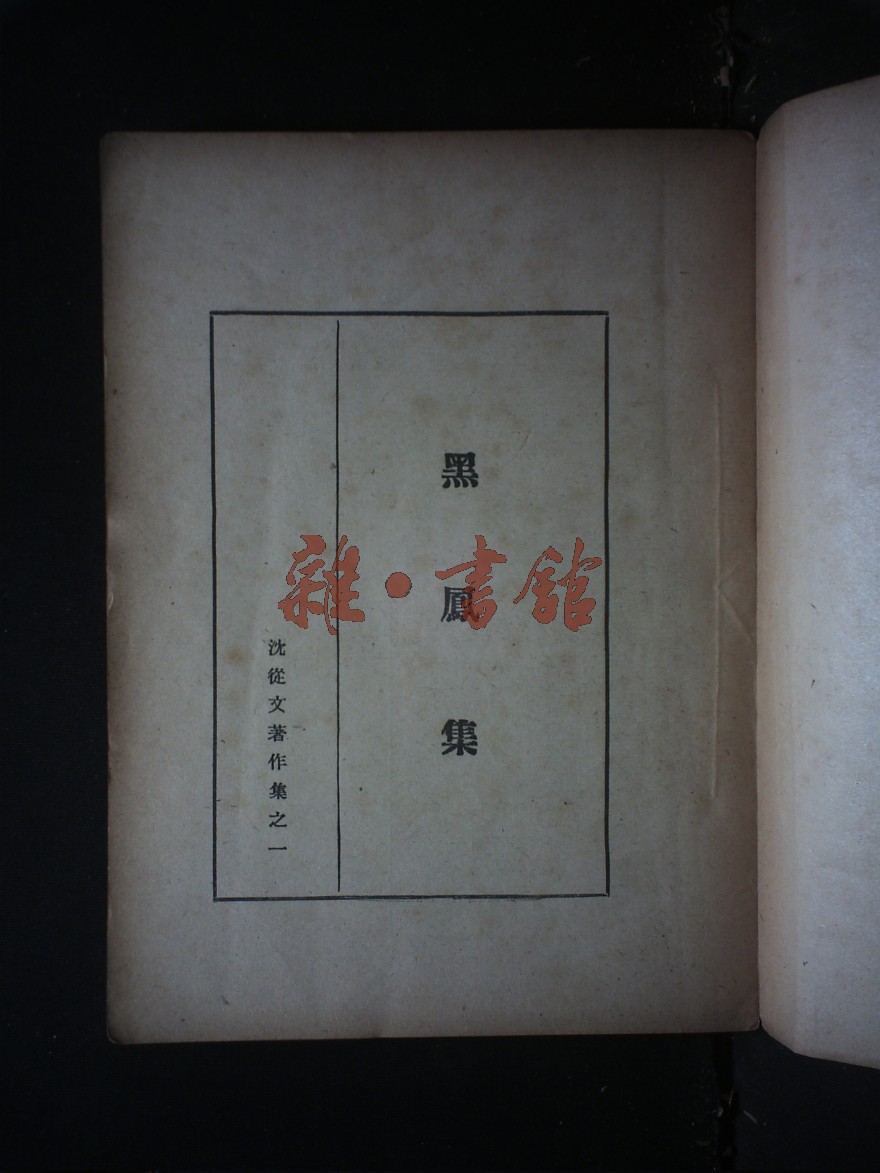 黑鳳集
沈從文著作集之一
雜·書館